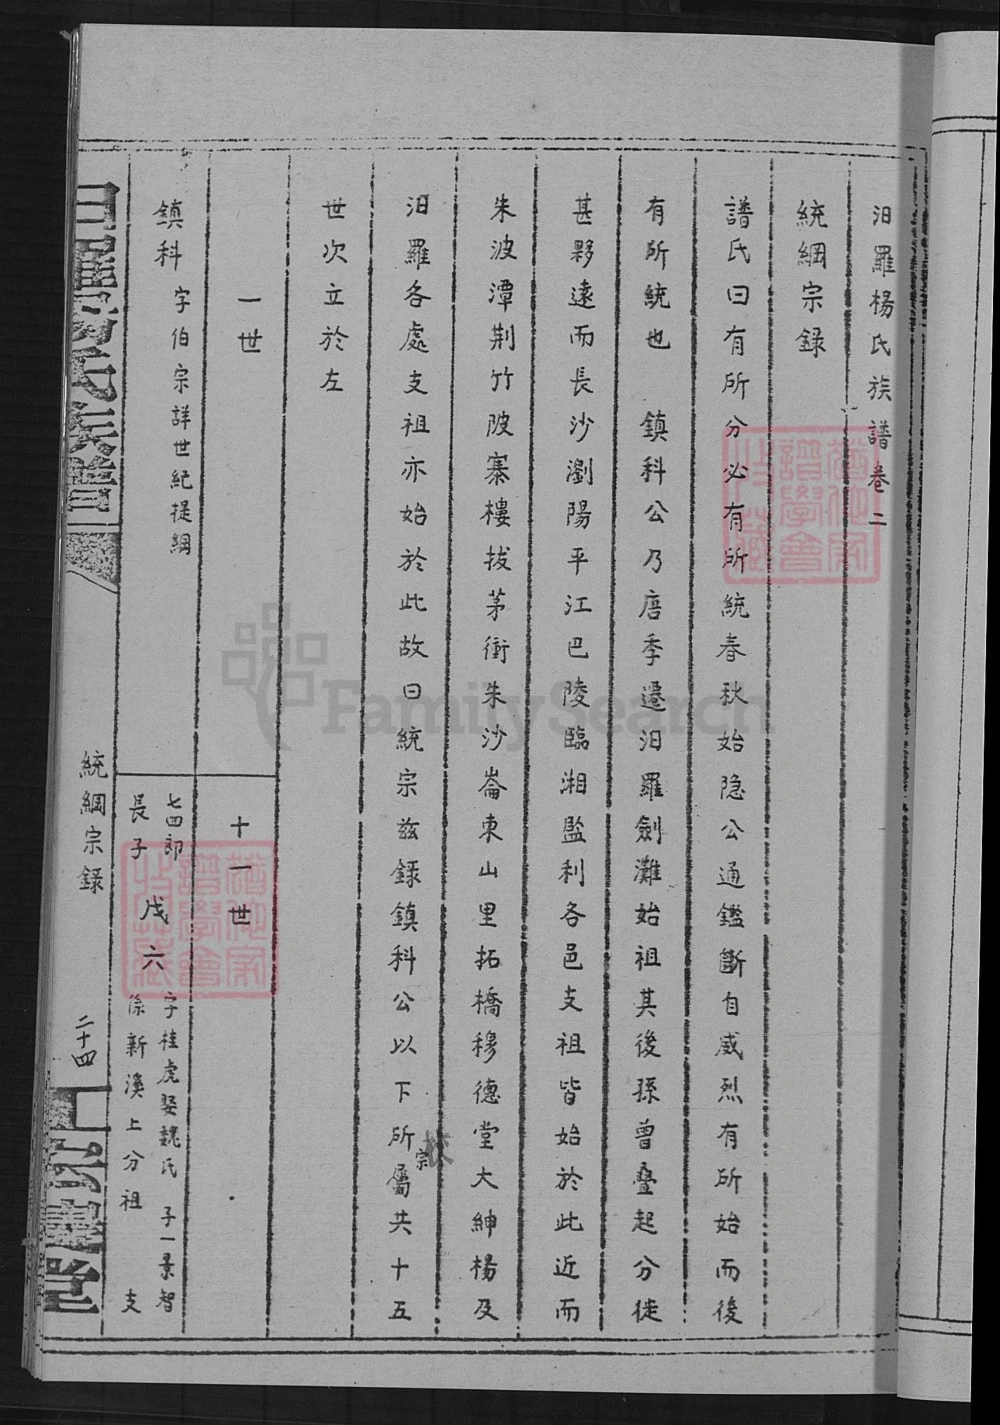 汨羅楊氏族譜卷二
統綱宗錄
譜氏曰有所分必有所統春秋始隐公通鑑斷自威烈有所始而後
有所統也 鎮科公乃唐季遷汨羅劍灘始祖其後孫曾叠起分徙
甚夥遠而長沙瀏陽平江巴陵臨湘監利各邑支祖皆始於此近而
朱波潭荆竹陂寨樓拔茅衝朱沙崙東山里拓橋穆德堂大紳楊及
汨羅各處支祖亦始於此故曰統宗兹錄鎮科公以下所屬共十五
宗
世次立於左
一世
十一世
鎮科 字伯宗詳世紀提綱
七四郎
長子
戊六
字桂虎娶魏氏 子一景智
係新溪上分祖 支
汨羅楊氏族譜
統綱宗錄
二十四
FamilySearch